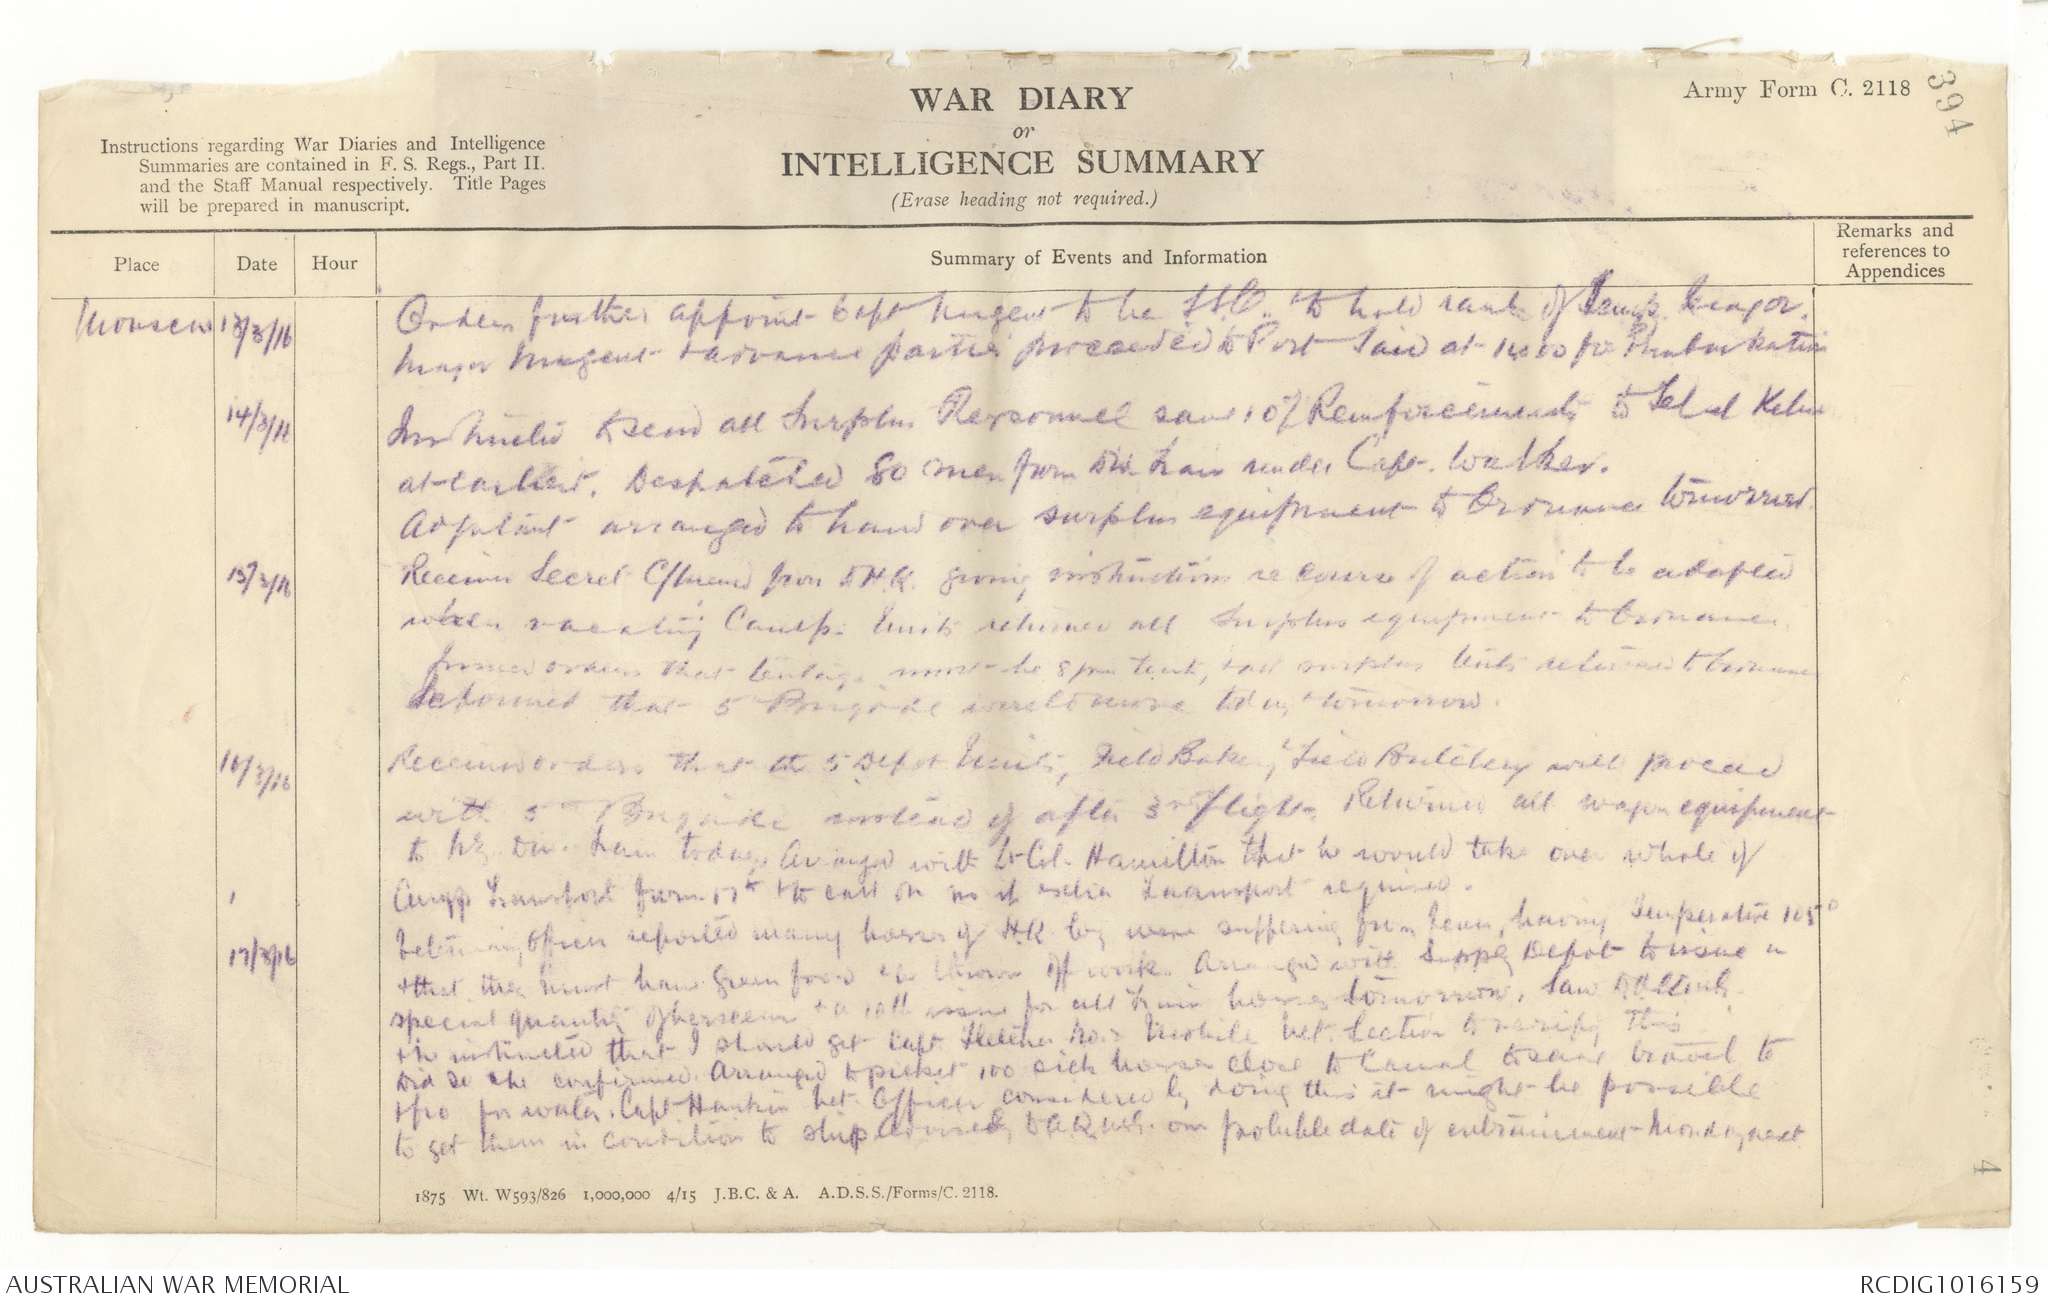 WAR DIARY
or
INTELLIGENCE SUMMARY
(Erase heading not required.)
Army Form C. 2118
394
Instructions regarding War Diaries and Intelligence
Summaries are contained in F. S. Regs., Part II.
and the Staff Manual respectively. Title Pages
will be prepared in manuscript.
Place
Date
Hour
Summary of Events and Information
Remarks and
references to
Appendices
13/3/16 Orders further appoint Capt Nugent to be to hold rank of Temp. Major.
Major Nugent + advance parties proceeded to Port Said at 1400 for Embarkation
14/3/16 to send all Surplus Personnel save 10% Reinforcements to Tel el Kebir
at earliest. Despatched 80 men from Div Train under Capt. Walker.
Adjutant arranged to hand over surplus equipment to Ordnance tomorrow.
15/3/16 Secret from D.H.Q. giving instructions re course of action to be adopted
when vacating Camp. Units returned all Surplus equipment to Ordnance.
orders that tentage must be 8 per tent, + all surplus tents returned to Ordnance
Informed that 5th Brigade would move today + tomorrow.
16/3/16 Received orders that the 5 Depot Units, Field Bakery, Field Butchery will proceed
with 5th Brigade instead of after 3rd flight. Returned all wagon equipment
to N.Z. Div. Train today. Arranged with Lt Col. Hamilton that he would take over whole of
Transport from 17th + to call on us if extra Transport required.
17/3/16 Veterinary Officer reported many horses of H.Q. Coy were suffering from having Temperature 105°
+ that they must have green food + be thrown off work. Arranged with Supply Depot to issue a
special quantity of berseem + a 10th issue for all Train horses tomorrow. Saw
+ he instructed that I should get Capt. Fletcher Mobile Vet. Section to verify this
Did so + he confirmed. Arranged to picket 100 sick horses close to Canal to save travel to
+ fro for water. Capt Vet. Officer considered by doing this it might be possible
to get them in condition to ship. Advised D.A.Q.M.G. our probable date of entrainment Monday next
1875 Wt. W593/826 1,000,000 4/15 J.B.C. & A. A.D.S.S./Forms/C. 2118.
4
AUSTRALIAN WAR MEMORIAL
RCDIG1016159